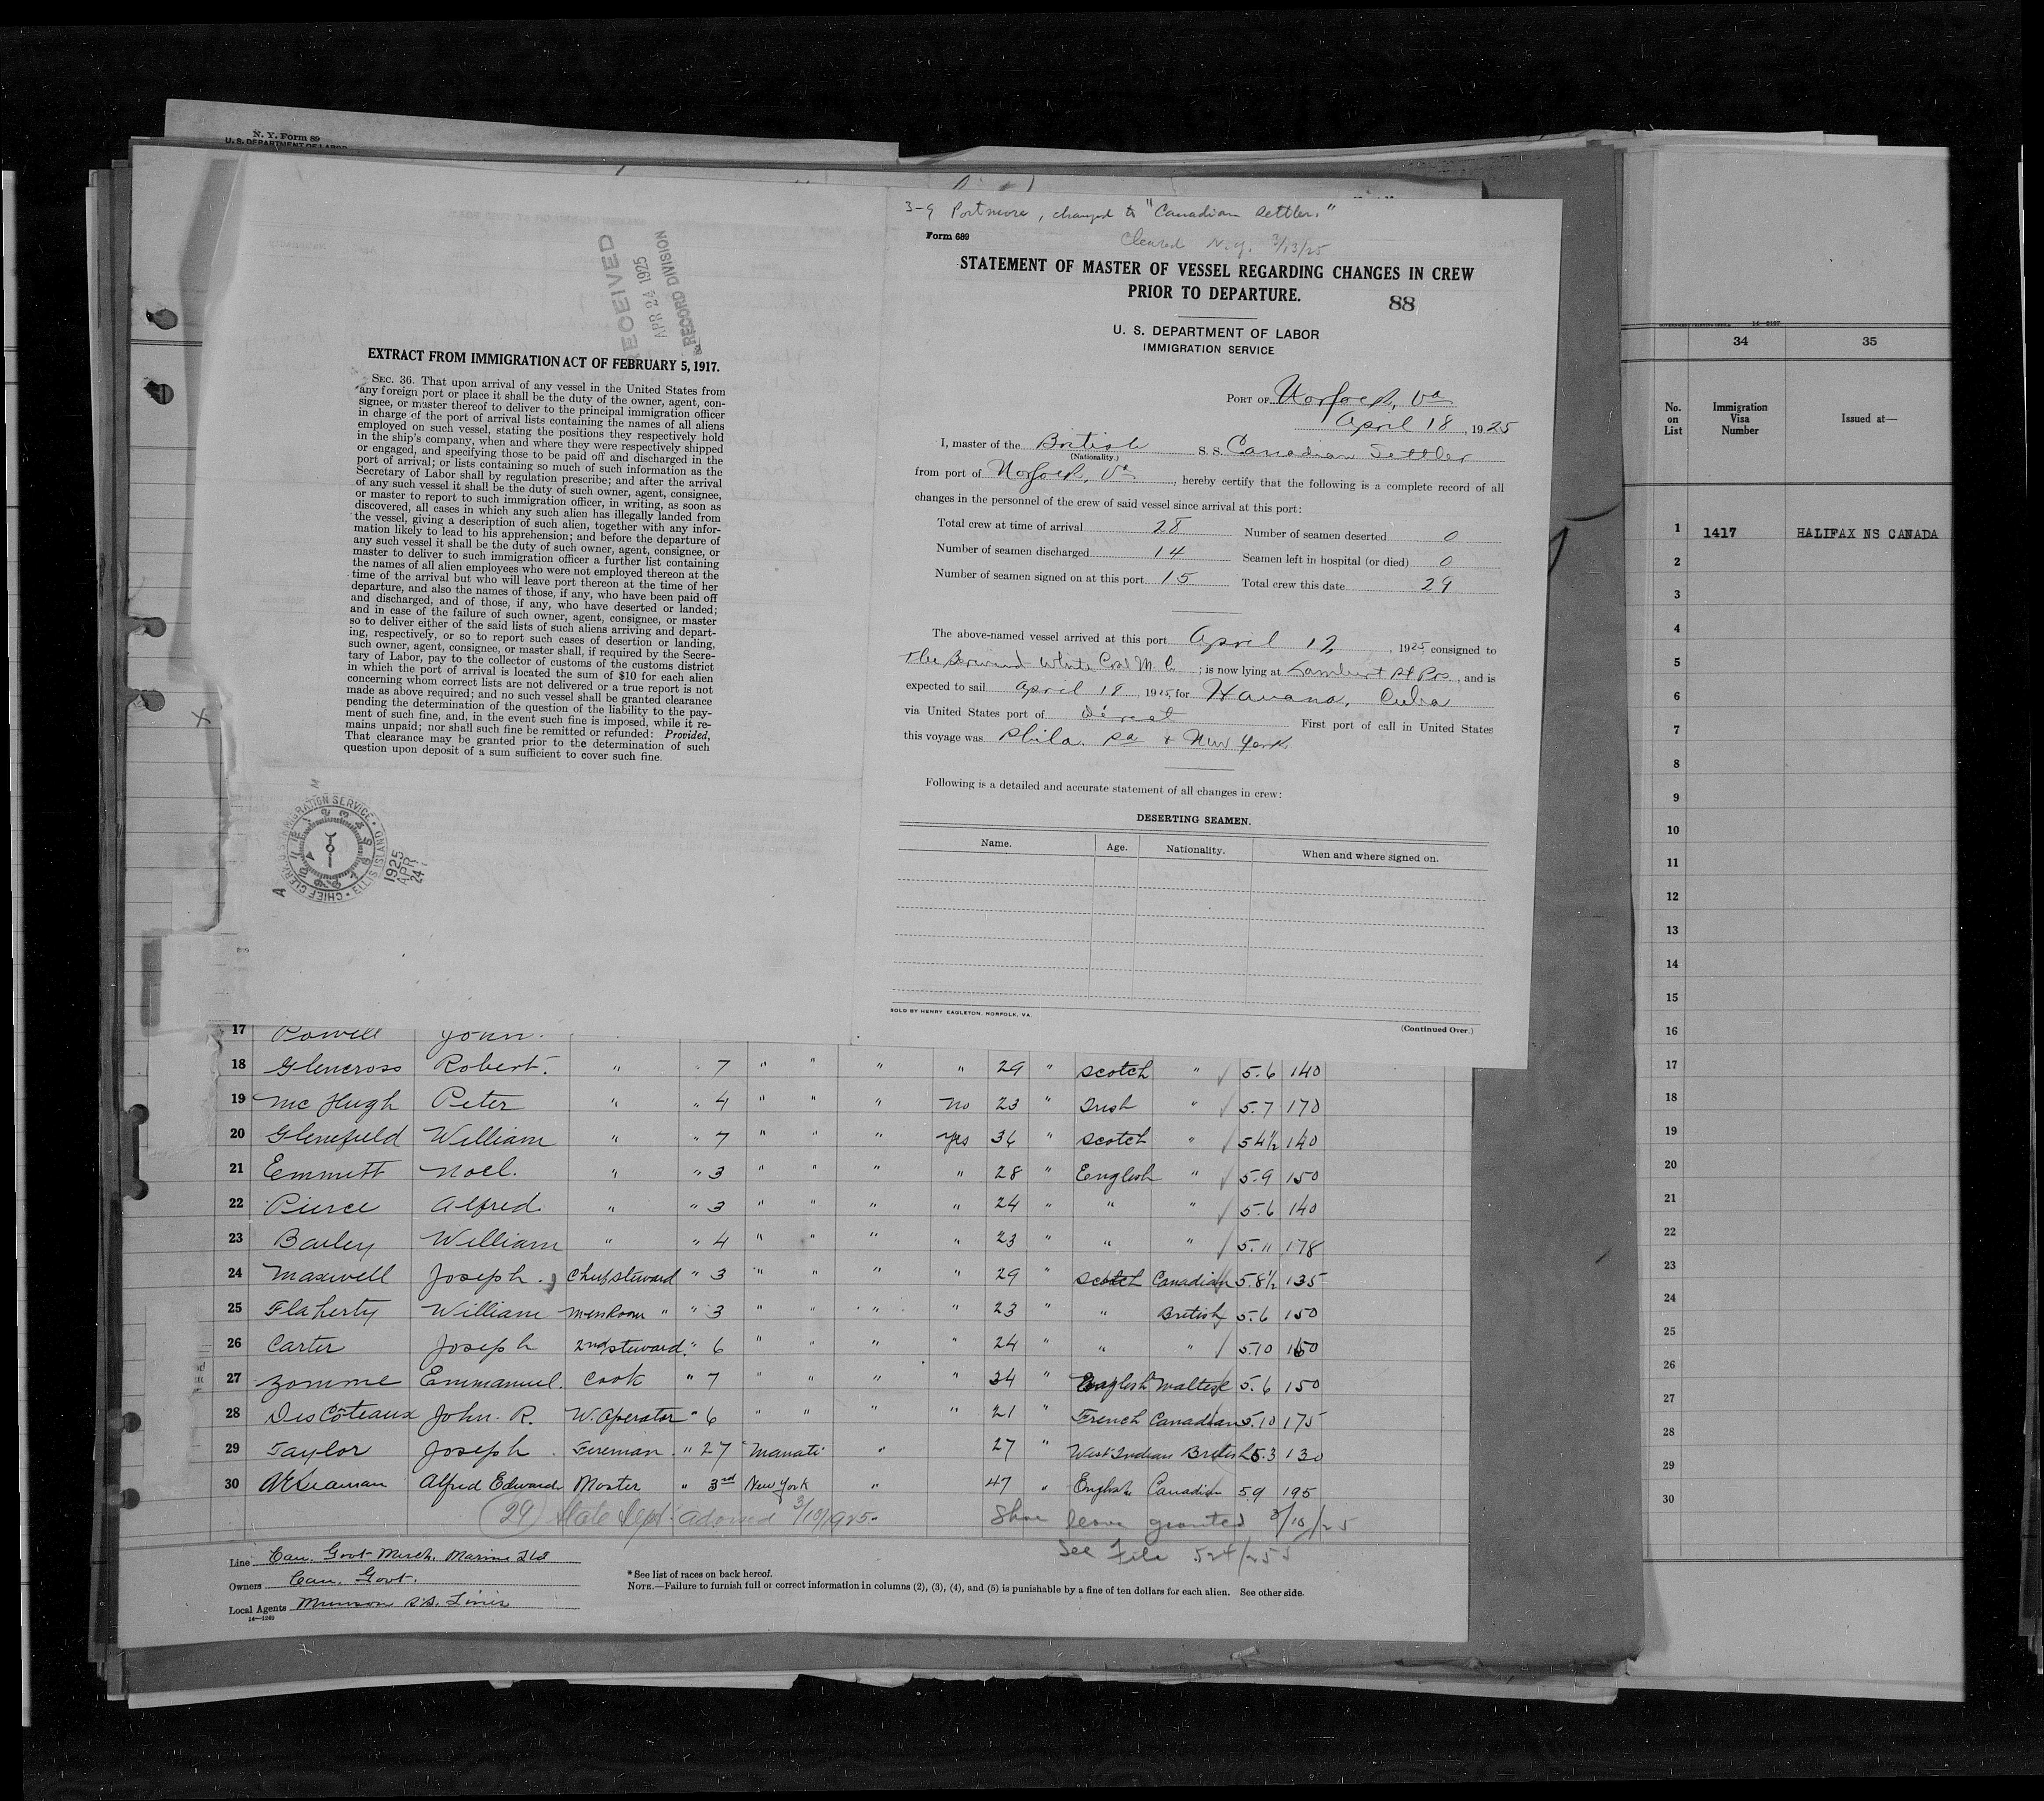 N. Y. Form 89
U. S. DEPARTMENT OF LABOR
RECEIVED
APR 24 1925
RECORD DIVISION
EXTRACT FROM IMMIGRATION ACT OF FEBRUARY 5, 1917.
SEC. 36. That upon arrival of any vessel in the United States from
any foreign port or place it shall be the duty of the owner, agent, con-
signee, or master thereof to deliver to the principal immigration officer
in charge of the port of arrival lists containing the names of all aliens
employed on such vessel, stating the positions they respectively hold
in the ship's company, when and where they were respectively shipped
or engaged, and specifying those to be paid off and discharged in the
port of arrival; or lists containing so much of such information as the
Secretary of Labor shall by regulation prescribe; and after the arrival
of any such vessel it shall be the duty of such owner, agent, consignee,
or master to report to such immigration officer, in writing, as soon as
discovered, all cases in which any such alien has illegally landed from
the vessel, giving a description of such alien, together with any infor-
mation likely to lead to his apprehension; and before the departure of
any such vessel it shall be the duty of such owner, agent, consignee, or
master to deliver to such immigration officer a further list containing
the names of all alien employees who were not employed thereon at the
time of the arrival but who will leave port thereon at the time of her
departure, and also the names of those, if any, who have been paid off
and discharged, and of those, if any, who have deserted or landed;
and in case of the failure of such owner, agent, consignee, or master
so to deliver either of the said lists of such aliens arriving and depart-
ing, respectively, or so to report such cases of desertion or landing,
such owner, agent, consignee, or master shall, if required by the Secre-
tary of Labor, pay to the collector of customs of the customs district
in which the port of arrival is located the sum of $10 for each alien
concerning whom correct lists are not delivered or a true report is not
made as above required; and no such vessel shall be granted clearance
pending the determination of the question of the liability to the pay-
ment of such fine, and, in the event such fine is imposed, while it re-
mains unpaid; nor shall such fine be remitted or refunded: Provided,
That clearance may be granted prior to the determination of such
question upon deposit of a sum sufficient to cover such fine.
CHIEF CLERK IMMIGRATION SERVICE ELLIS ISLAND
1925 APR 24
3-9 Portmore, changed to "Canadian Settler."
Cleared N.Y. 3/13/25
Form 689
STATEMENT OF MASTER OF VESSEL REGARDING CHANGES IN CREW
PRIOR TO DEPARTURE.
88
U. S. DEPARTMENT OF LABOR
IMMIGRATION SERVICE
PORT OF Norfolk, Va
April 18, 1925
I, master of the British S. S. Canadian Settler
(Nationality.)
from port of Norfolk, Va, hereby certify that the following is a complete record of all
changes in the personnel of the crew of said vessel since arrival at this port:
Total crew at time of arrival 28 Number of seamen deserted 0
Number of seamen discharged 14 Seamen left in hospital (or died) 0
Number of seamen signed on at this port 15 Total crew this date 29
The above-named vessel arrived at this port April 12, 1925 consigned to
The Berwind White Coal M. C.; is now lying at Lambert Pt Prs, and is
expected to sail April 18, 1925, for Havana, Cuba
via United States port of Direct First port of call in United States
this voyage was Phila. Pa & New York
Following is a detailed and accurate statement of all changes in crew:
DESERTING SEAMEN.
Name. Age. Nationality. When and where signed on.
SOLD BY HENRY EAGLETON, NORFOLK, VA.
(Continued Over.)
17 Powell John.
18 Glencross Robert. " " 7 " " " " 29 " Scotch " 5.6 140
19 McHugh Peter " " 4 " " " No 23 " Irish " 5.7 170
20 Glenefield William " " 7 " " " Yes 36 " Scotch " 5 4½ 140
21 Emmett Noel. " " 3 " " " " 28 " English " 5.9 150
22 Pierce Alfred. " " 3 " " " " 24 " " " 5.6 140
23 Bailey William " " 4 " " " " 23 " " " 5.11 178
24 Maxwell Joseph. Chief steward " 3 " " " " 29 " Scotch Canadian 5.8½ 135
25 Flaherty William Messroom " " 3 " " " " 23 " " British 5.6 150
26 Carter Joseph 2nd steward. " 6 " " " " 24 " " " 5.10 160
27 Zomme Emmanuel. Cook " 7 " " " " 34 " English Maltese 5.6 150
28 DesCôteaux John. R. W. Operator " 6 " " " " 21 " French Canadian 5.10 175
29 Taylor Joseph. Fireman. " 27 Manati " 27 " West Indian British 5.3 130
30 Seaman Alfred Edward Master " 3rd New York " 47 " English Canadian 5.9 195
(29) State Dept. advised 3/10/1925.
Shore leave granted 3/10/25
See File 524/255
Line Can. Govt Merch. Marine Ltd
Owners Can. Govt.
Local Agents Munson S.S. Lines
14—1240
* See list of races on back hereof.
NOTE.—Failure to furnish full or correct information in columns (2), (3), (4), and (5) is punishable by a fine of ten dollars for each alien. See other side.
34 35
No. on List
Immigration Visa Number
Issued at—
1 1417 HALIFAX NS CANADA
2
3
4
5
6
7
8
9
10
11
12
13
14
15
16
17
18
19
20
21
22
23
24
25
26
27
28
29
30